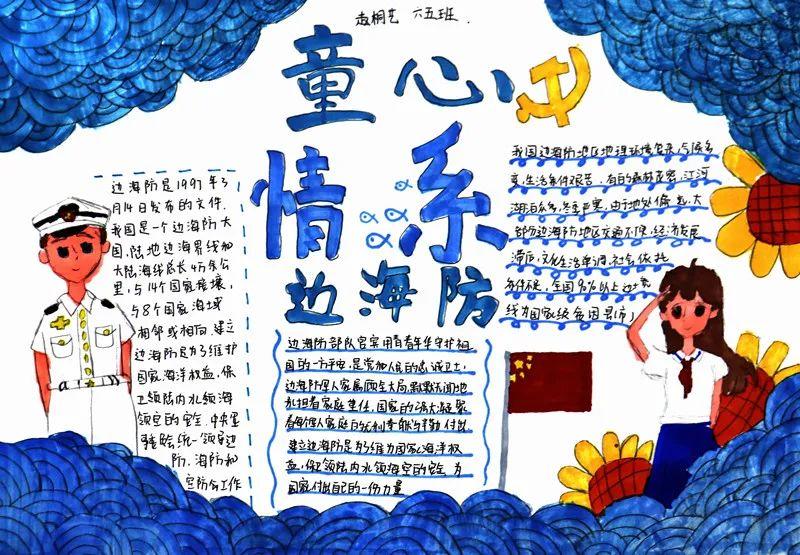 赵桐艺 六五班.
童心
情系
边海防
边海防是1997年3
月14日发布的文件.
我国是一个边海防大
国,陆地边海界线加
大陆海线总长4万余公
里,与14个国家接壤,
与8个国家海域
相邻或相向.建立
边海防是为了维护
国家海洋权益,保
卫领陆内水领海
领空的安全.中央军
领导边
防、海防和
空防的工作
边海防部队官宾用青春年华守护祖
国的一方平安,是党和人民的忠诚卫士,
边海防军人家属顾全大局,默默无闻地
承担着家庭重任,国家的强大凝聚
着每个军人家庭的
建立边海防是为了维为国家海洋权
益,保卫领陆内水领海空的安全.为
国家付出自己的一份力量
我国边海防地区地理环境复杂,气候多
变,生活条件艰苦,有的森林茂密,江河
湖泊众多,冬季严寒,由于地处偏远,大
部分边海防地区交通不便,经济发展
滞后,文化生活单调,社会依托
条件不足,全国90%以上边境
线为国家级贫困县市」